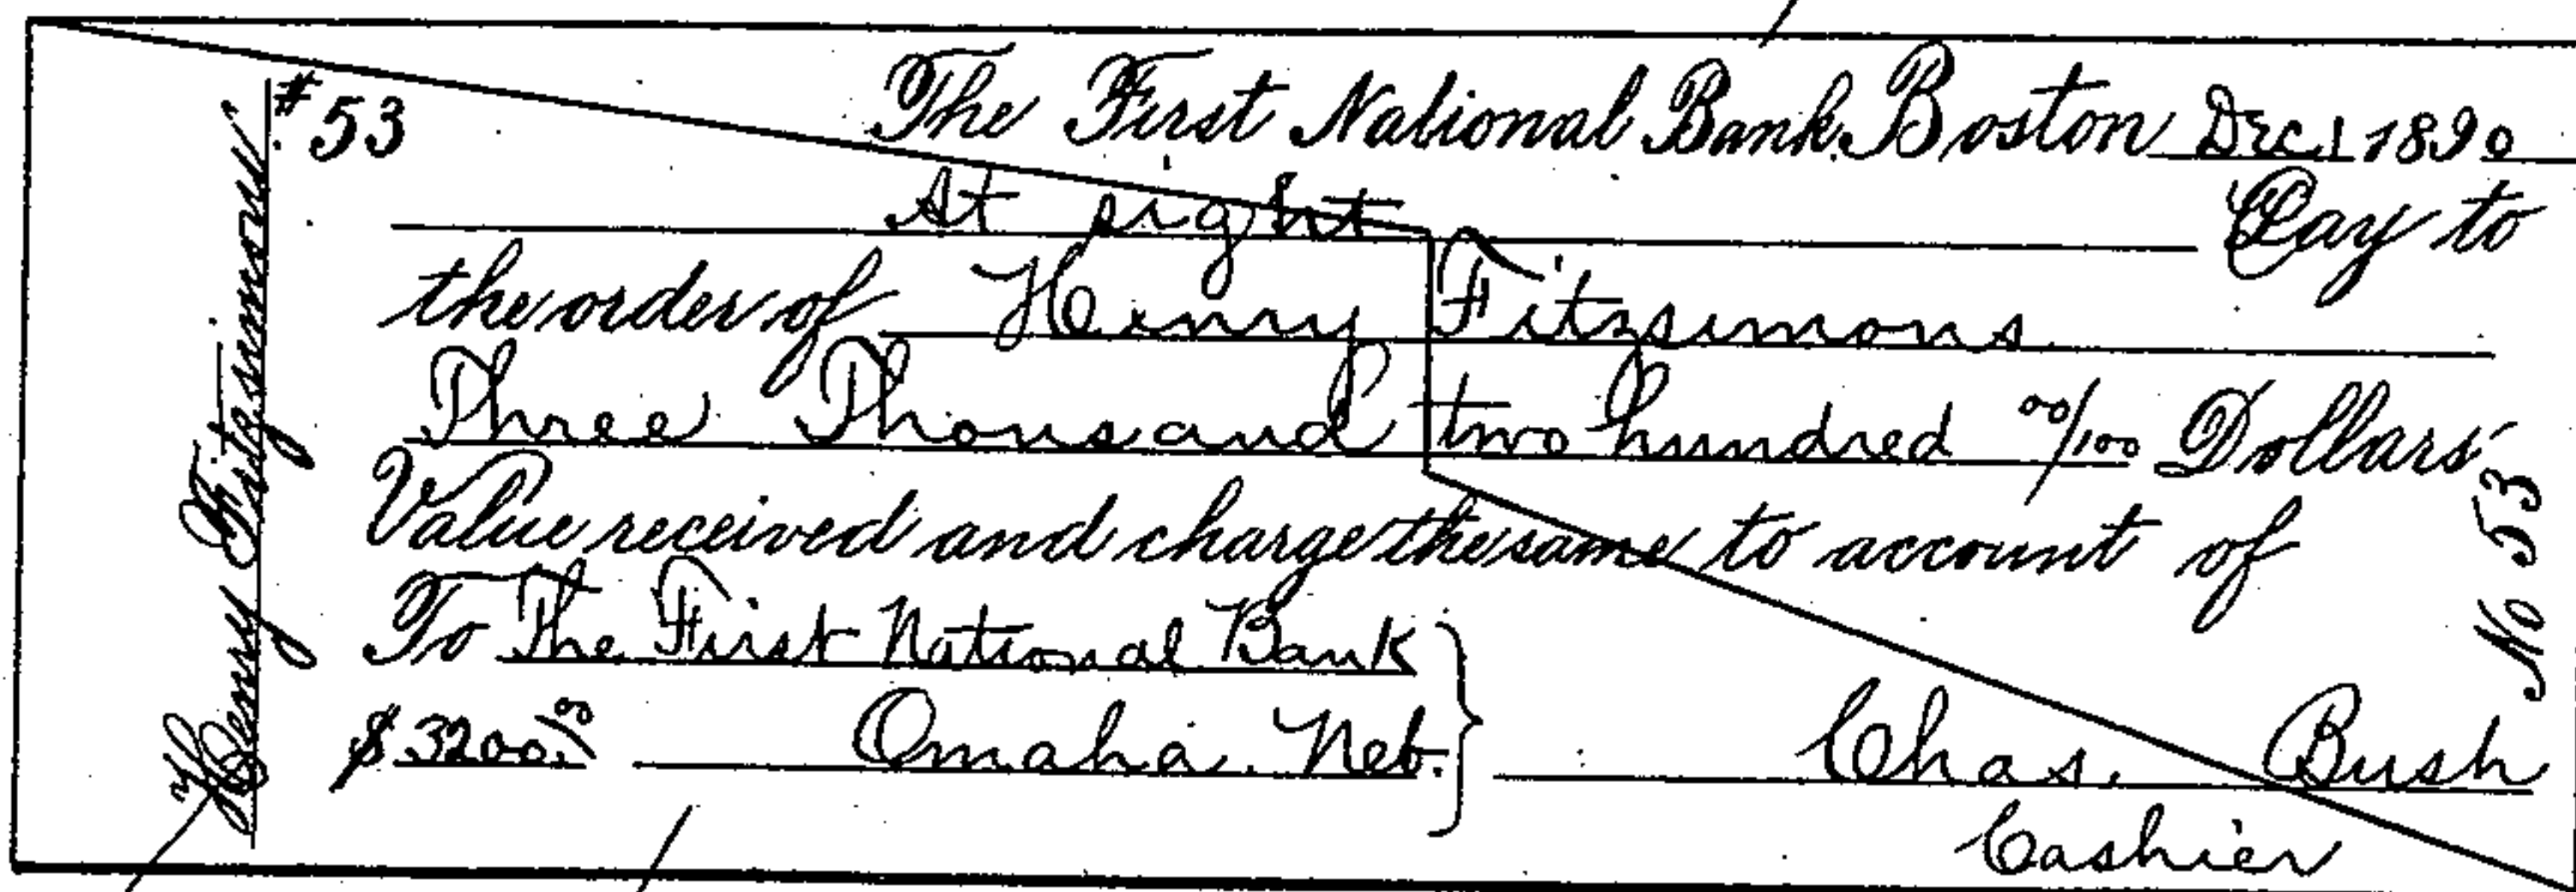 #53
The First National Bank. Boston Dec. 1 1890
At sight Pay to
the order of Henry Fitzsimons
Three Thousand two hundred 00/100 Dollars
Value received and charge the same to account of
To The First National Bank
$3200.00 Omaha. Neb.
Chas. Bush
Cashier
Henry Fitzsimons
No 53